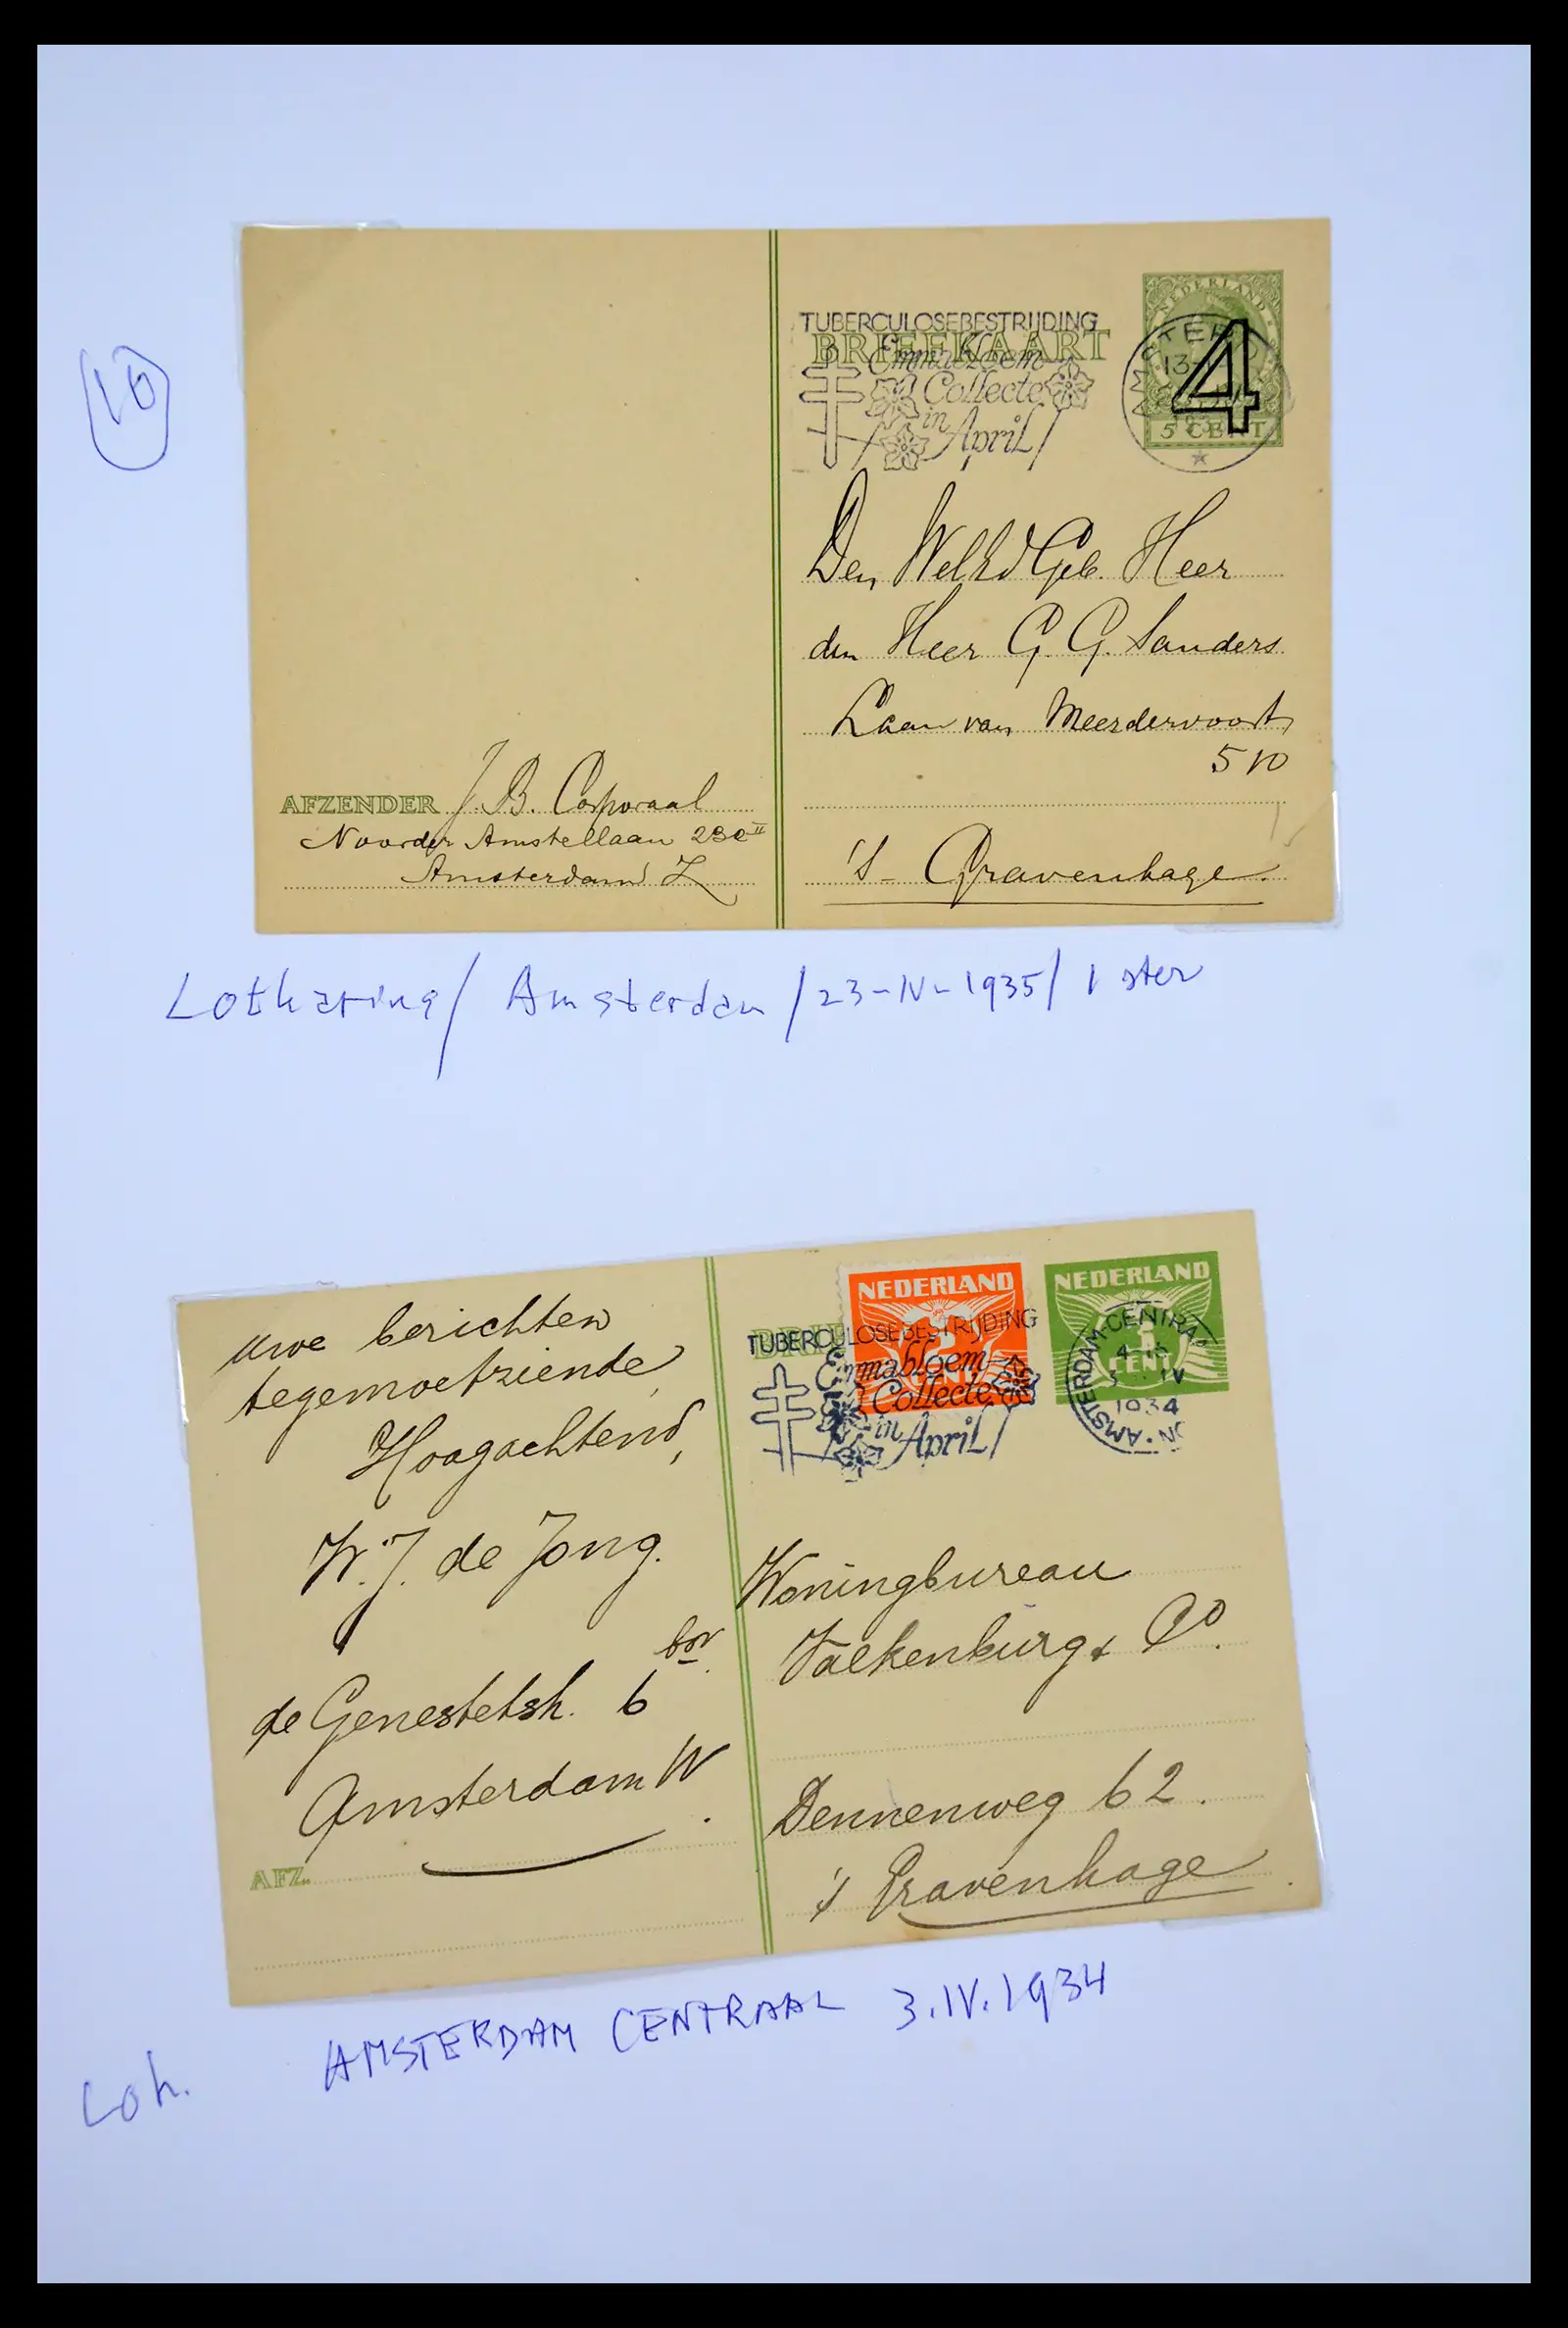 10
NEDERLAND
TUBERCULOSEBESTRIJDING
BRIEFKAART
Emmabloem
Collecte
in
April
4
5 CENT
Den WelEd Geb. Heer
den Heer G. G. Sanders
Laan van Meerdervoort
510
's-Gravenhage.
AFZENDER J. B. Corporaal
Noorder Amstellaan 230 II
Amsterdam Z
Lotharing / Amsterdam / 23-IV-1935 / 1 ster
uwe berichten
tegemoetziende,
Hoogachtend,
W. J. de Jong.
de Genestetstr. 6 bov.
Amsterdam W.
AFZ.
NEDERLAND
NEDERLAND
TUBERCULOSEBESTRIJDING
Emmabloem
Collecte
in
April
CENT
AMSTERDAM-CENTRA
IV
1934
Woningbureau
Valkenburg & Co.
Dennenweg 62.
's Gravenhage
AMSTERDAM CENTRAAL 3.IV.1934
Loh.